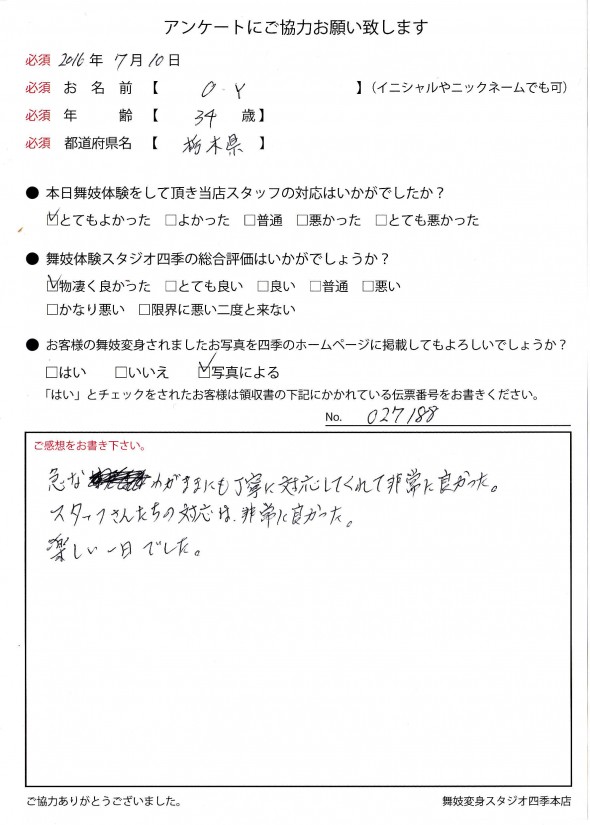 アンケートにご協力お願い致します
必須 2016年 7月10日
必須 お 名 前 【 O Y 】（イニシャルやニックネームでも可）
必須 年 齢 【 34 歳】
必須 都道府県名 【 栃木県 】
● 本日舞妓体験をして頂き当店スタッフの対応はいかがでしたか？
☑とてもよかった □よかった □普通 □悪かった □とても悪かった
● 舞妓体験スタジオ四季の総合評価はいかがでしょうか？
☑物凄く良かった □とても良い □良い □普通 □悪い
□かなり悪い □限界に悪い二度と来ない
● お客様の舞妓変身されましたお写真を四季のホームページに掲載してもよろしいでしょうか？
□はい □いいえ ☑写真による
「はい」とチェックをされたお客様は領収書の下記にかかれている伝票番号をお書きください。
No. 027188
ご感想をお書き下さい。
急な わがままにも丁寧に対応してくれて非常に良かった。
スタッフさんたちの対応は、非常に良かった。
楽しい一日でした。
ご協力ありがとうございました。 舞妓変身スタジオ四季本店